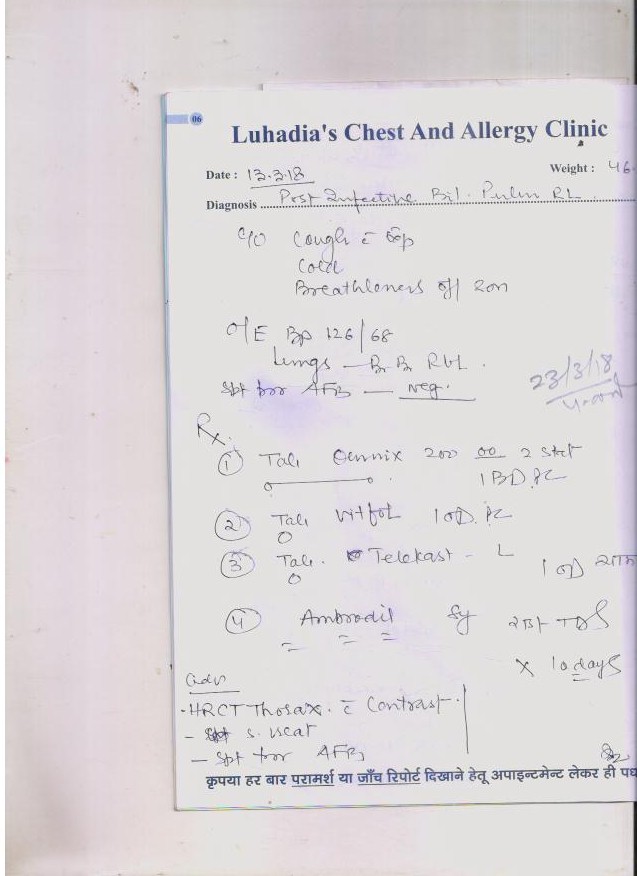 06
Luhadia's Chest And Allergy Clinic
Date : 13.3.18 Weight : 46.
Diagnosis Post Infective Bil. Pulm
c/o Cough c̄ Exp
Cold
Breathlessness off / on
O/E Bp 126/68
Lungs —
Spt for AFB — neg.
23/3/18
Rx.
① Tab. 200 2 Stat
1 BD PC
② Tab 1 OD. PC
③ Tab. Telekast - L 1 OD
④ Ambrodil Sy TDS
x 10 days
Adv
- HRCT Thorax. c̄ Contrast.
- Spt
- Spt for AFB
कृपया हर बार परामर्श या जाँच रिपोर्ट दिखाने हेतू अपाइन्टमेन्ट लेकर ही पध